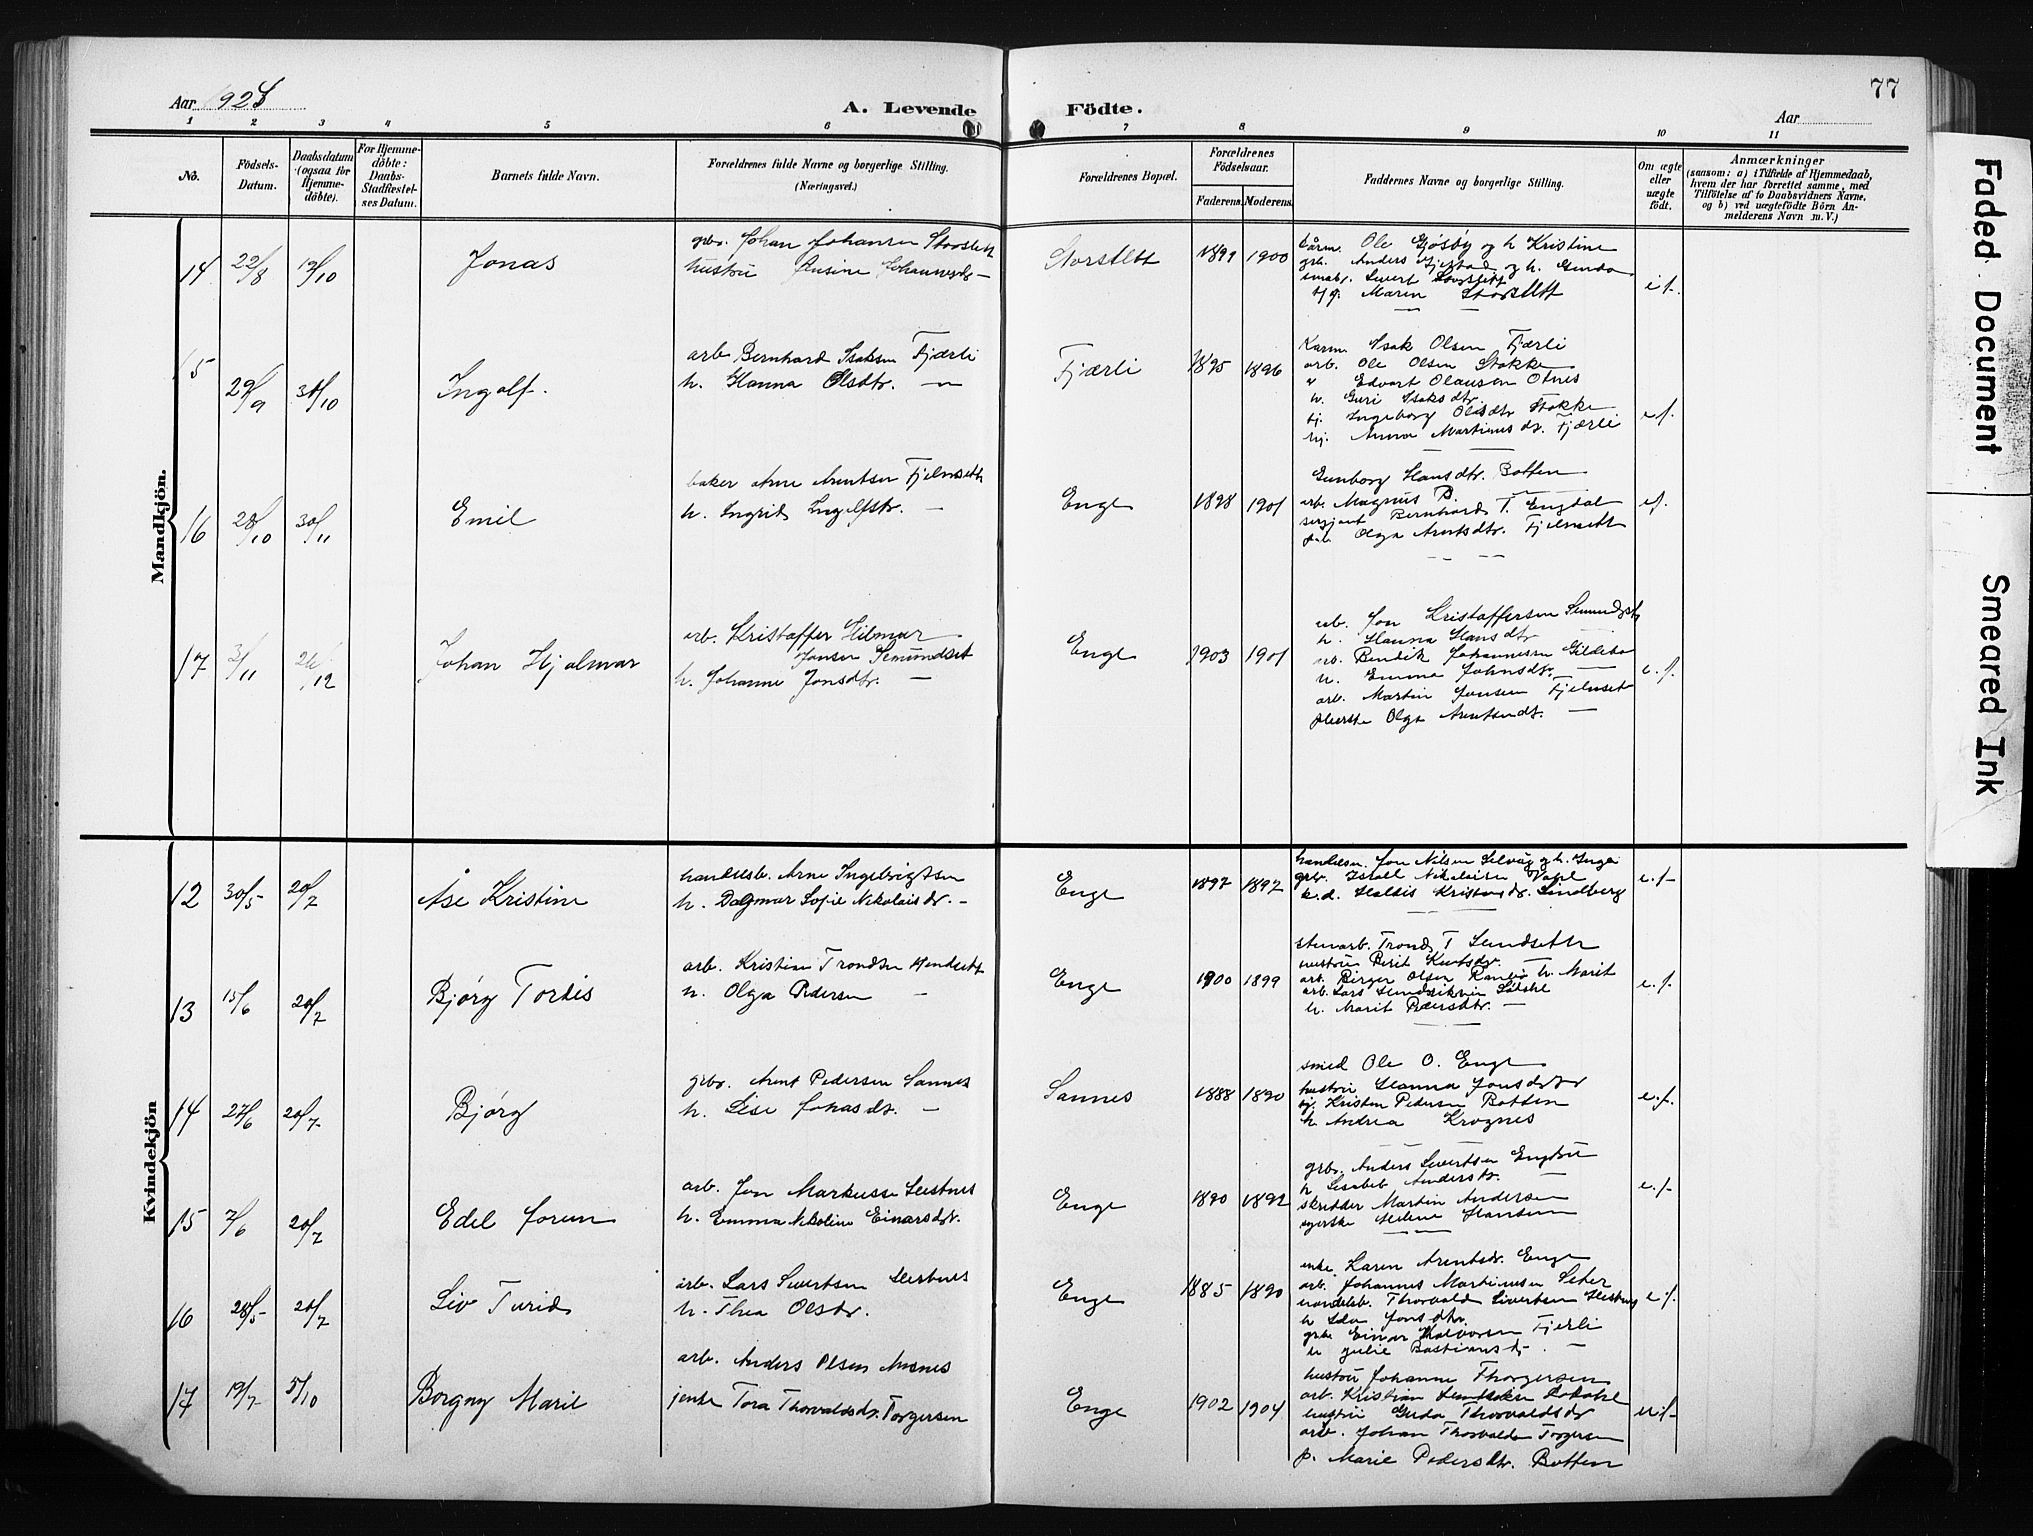 77
Aar 1924
A. Levende Födte.
Aar
1 2 3 4 5 6 7 8 9 10 11
No.
Födsels-Datum.
Daabsdatum (ogsaa for Hjemme-döbte).
For Hjemme-döbte: Daabs-Stadfæstel-ses Datum.
Barnets fulde Navn.
Forældrenes fulde Navne og borgerlige Stilling.
(Næringsvei.)
Forældrenes Bopæl.
Forældrenes Födselsaar.
Faderens. Moderens.
Faddernes Navne og borgerlige Stilling.
Om ægte eller uægte födt.
Anmærkninger
(saasom: a) i Tilfælde af Hjemmedaab,
hvem der har forrettet samme, med
Tilföielse af to Daabsvidners Navne,
og b) ved uægtefödte Börn An-
melderens Navn m. V.)
Mandkjön.
14 22/8 19/10 Jonas
gbr. Johan Johansen Storslett
hustru Ansine Johannesdr —
Storslett 1899 1900
Ole Gjøsby og h Kristine
gb. Anders og h. Gunda
Sivert Storslett
Maren Storslett
15 29/9 Ingolf.
arb Bernhard Isaksen Fjærli
h. Hanna Olsdtr. —
Fjærli 1895 1896
Isak Olsen Fjærli
arb. Ole Olsen Stokke
" Edvart Olausen Otnes
h. Guri Isaksdtr.
Ingeborg Olsdtr Stokke
Anna Martinusdr. Fjærli
e.f.
16 28/10 30/11 Emil
baker Arne Arentsen Fjelnseth
h. Ingrid Ingolfstr. —
Enge 1898 1901
Gunborg Hansdtr. Botten
arb. Magnus B.
sersjant Bernhard T. Engdal
Olga Arentsdtr. Fjelnsett
e.f.
17 3/11 26/12 Johan Hjalmar
arb. Kristoffer Hilmar
Jonsen Semundset
h. Johanne Jonsdtr. —
Enge 1903 1901
arb. Jon Kristoffersen Semundset
h. Hanna Hansdtr —
arb. Bendik Johannesen Gildebo
h. Emma Johnsdtr. —
arb. Martin Jonsen Fjelnset
Olga Arentsendt. —
e.f.
Kvindekjön
12 30/5 20/7 Åse Kristine
handelsb. Arne Ingebrigtsen
h. Dagmar Sofie Nikolaisdr. —
Enge 1897 1897
handelsm. Jon Nilsen Selvåg og h. Inga
gbr. Israel Nikolaisen Vaagl
Haldis Kristensdr. Lindberg
e.f.
13 15/6 20/7 Bjørg Tordis
arb. Kristian Trondsen Hendset
h. Olga Pedersen —
Enge 1900 1899
stenarb. Trond T Hendseth
hustru Berit Knutsdr. —
arb. Birger Olsen h. Marit
arb. Lars
h. Marit Pedersdtr. —
e.f.
14 27/6 20/7 Bjørg
gbr. Arent Pedersen Sannes
h. Lise Johasdr. —
Sannes 1888 1890
smed Ole O. Enge
hustru Hanna Jonsdtr
Kristen Pedersen Botten
h Andrea Krognes
e.f.
15 7/6 20/7 Edel Jorun
arb. Jon Markusse Hestnes
h. Emma Nikoline Einarsdr.
Enge 1890 1892
gbr. Anders Sivertsen Engdal
h Lisabet Andersdr. —
skredder Martin Andersen
syerske Helene Hansen
e.f.
16 28/5 20/7 Liv Turid
arb. Lars Sivertsen Hestnes
h. Thea Olsdr.
Enge 1885 1890
enke Karen Arentsdr. Enge
arb. Johannes Martinusen Seter
handelsb. Thorvald Sivertsen Hestnes
h Ida Jonsdtr.
Einar Halvorsen Fjerli
h Julie Bastiansdr. —
e.f.
17 19/7 5/10 Borgny Marie
arb. Anders Olsen Aasnes
jente Tora Thorvaldsdr. Torgersen
Enge 1902 1904
hustru Johanne Thorgersen
arb. Kristian
hustru Gerda Thorvaldsdr
arb. Johan Thorvalds Torgersen
p. Marie Pedersdtr. Botten
u.f.
Faded Document
Smeared Ink